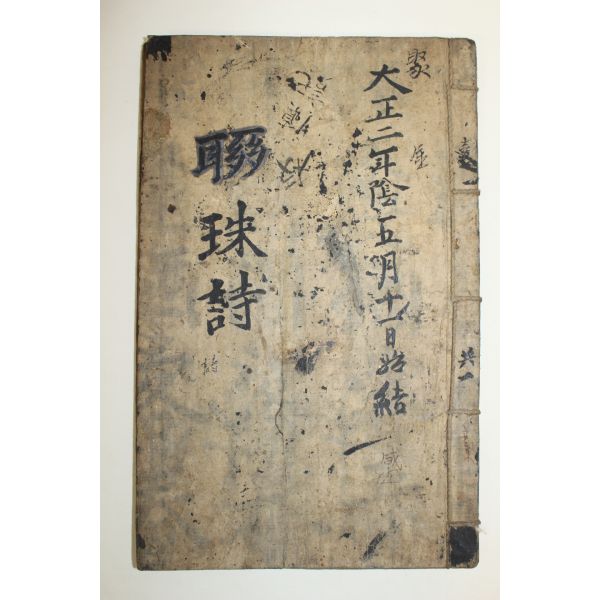 聚
大正二年陰五月十一日始結
聯珠詩
詩
共一